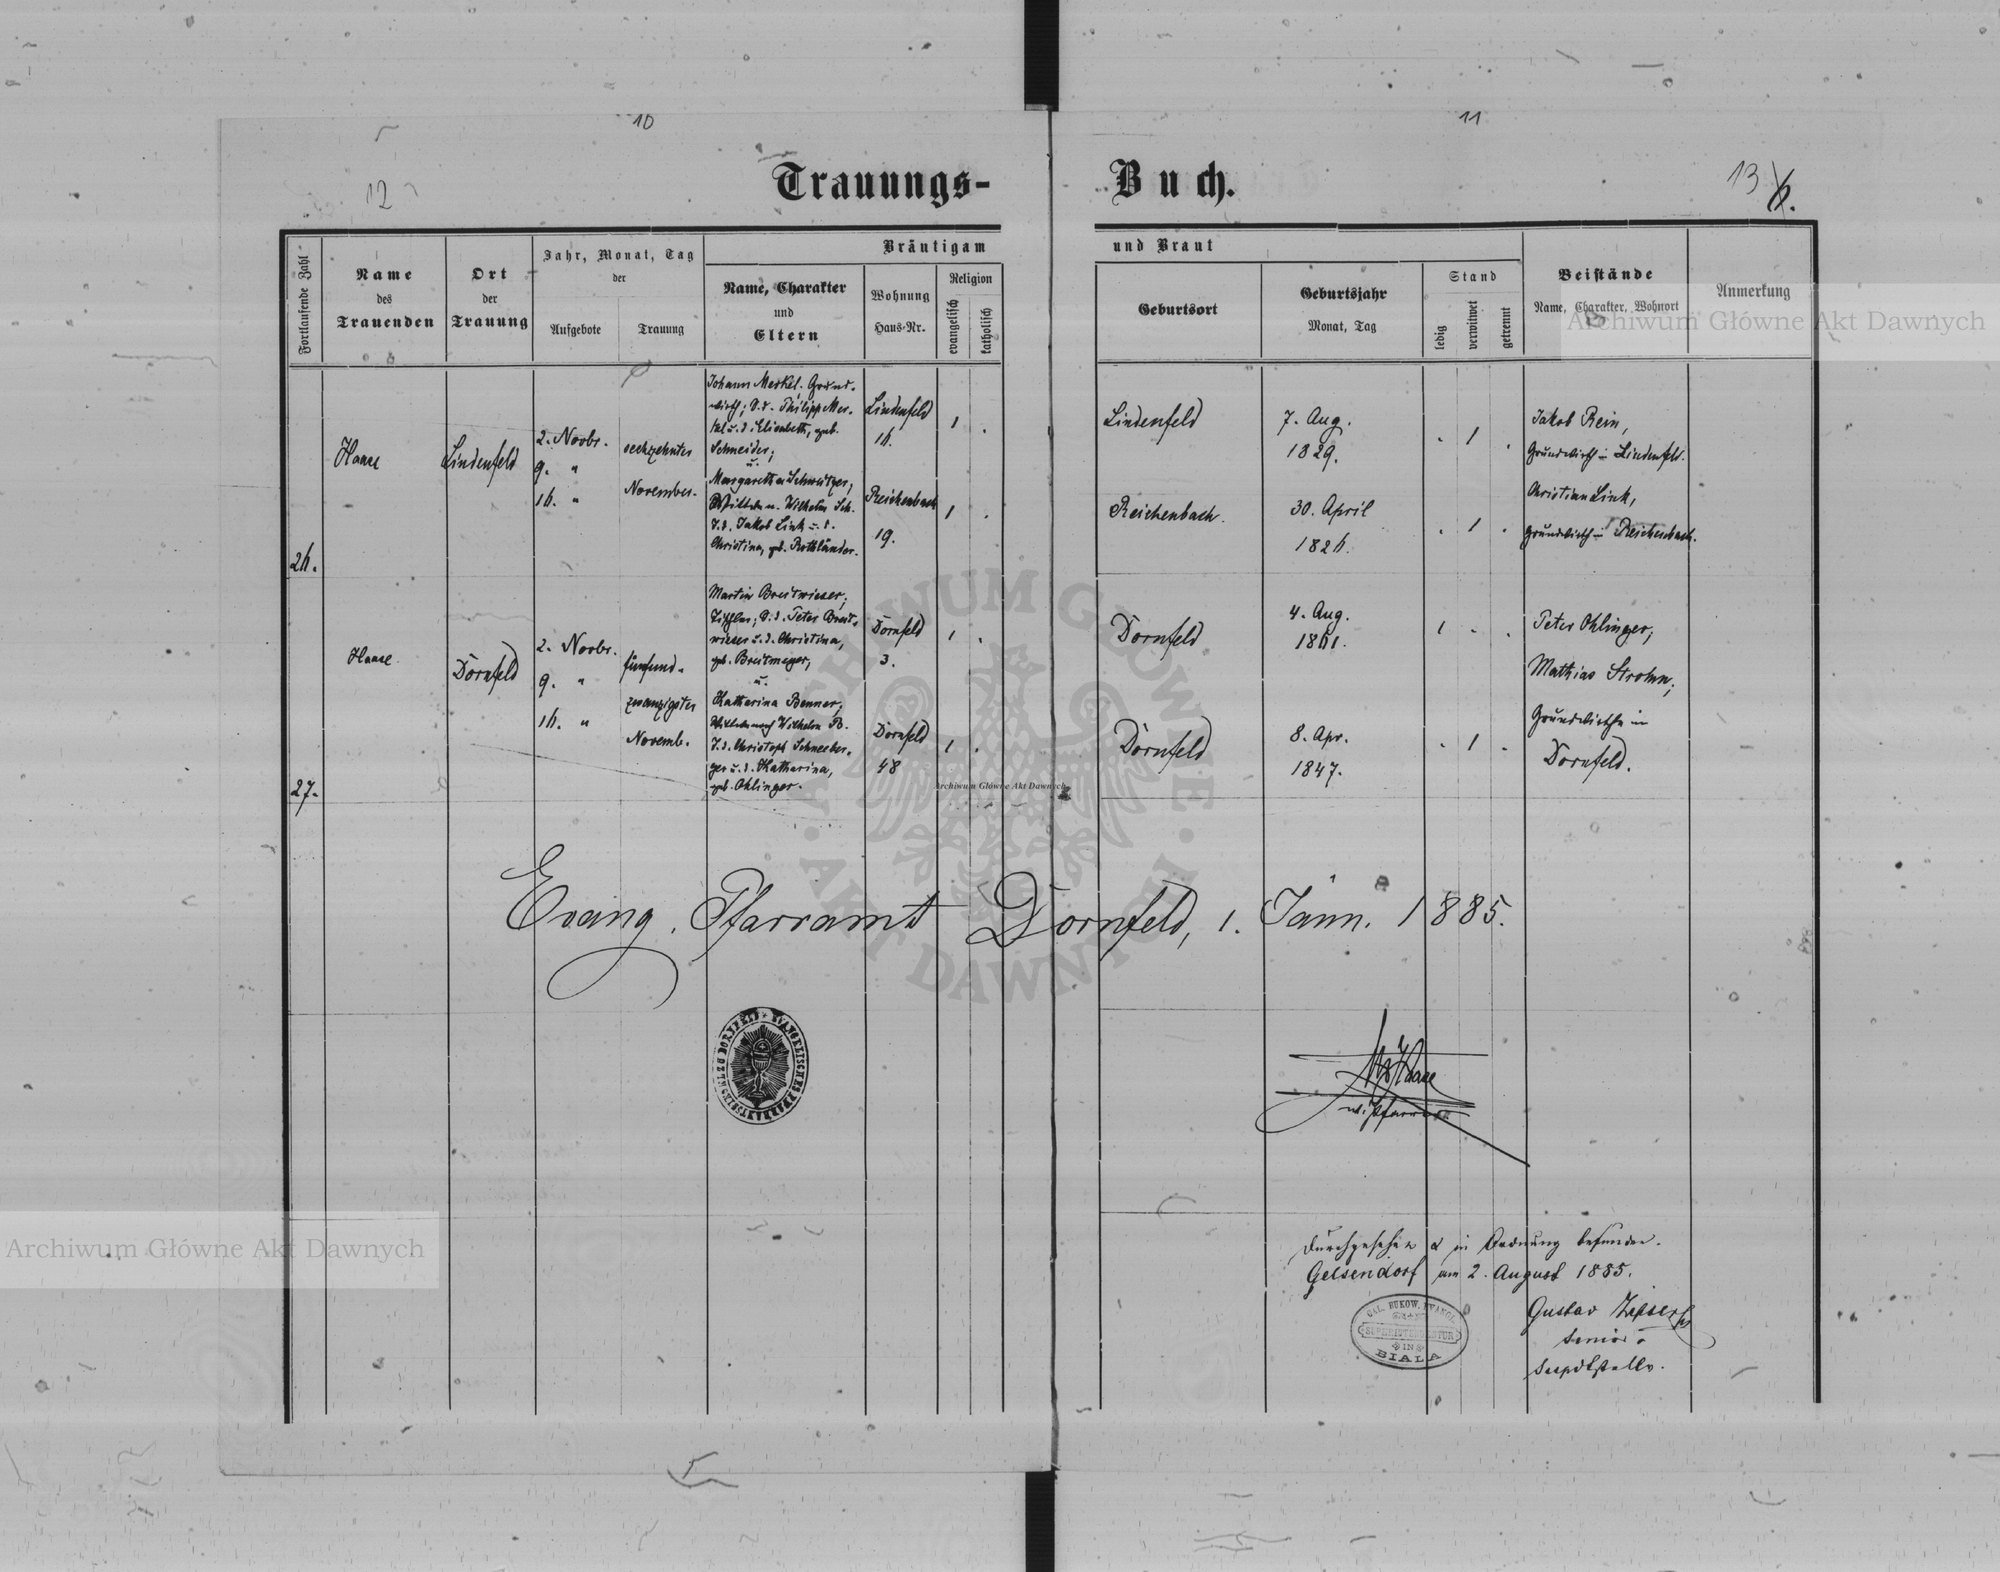 10
11
Trauungs-
Buch.
12
13
Fortlaufende Zahl
Name
des
Trauenden
Ort
der
Trauung
Jahr, Monat, Tag
der
Aufgebote
Trauung
Bräutigam
Name, Charakter
und
Eltern
Wohnung
Haus-Nr.
Religion
evangelisch
katholisch
und Braut
Geburtsort
Geburtsjahr
Monat, Tag
Stand
ledig
verwitwet
getrennt
Beistände
Name, Charakter, Wohnort
Anmerkung
Archiwum Główne Akt Dawnych
26.
Haase
Lindenfeld
2. Novbr.
9. "
16. "
sechzehnter
November.
Johann Merkel, Grund-
wirth; S. d. Philipp Mer-
kel u. d. Elisabeth, geb.
Schneider;
u.
Margaretha Schweitzer,
Wittwe n. Wilhelm Sch.
T. d. Jakob Link u. d.
Christina, geb. Rothländer.
Lindenfeld
16.
Reichenbach
19.
1 .
1 .
Lindenfeld
7. Aug.
1829.
. 1 .
Reichenbach.
30. April
1826.
. 1 .
Jakob Rein,
Grundwirth in Lindenfeld.
Christian Link,
Grundwirth in Reichenbach.
27.
Haase
Dornfeld
2. Novbr.
9. "
16. "
fünfund-
zwanzigster
Novemb.
Martin Breitwieser,
Tischler; S. d. Peter Breit-
wieser u. d. Christina,
geb. Breitmeyer,
u.
Katharina Benner,
Wittwe nach Wilhelm B.
T. d. Christoph Schneeber-
ger u. d. Katharina,
geb. Ohlinger.
Dornfeld
3.
Dornfeld
48
1 .
1 .
Dornfeld
4. Aug.
1861.
1 . .
Dornfeld
8. Apr.
1847.
. 1 .
Peter Ohlinger,
Mathias Strohm,
Grundwirthe in
Dornfeld.
Archiwum Główne Akt Dawnych
ARCHIWUM GŁÓWNE AKT DAWNYCH
Evang. Pfarramt Dornfeld, 1. Jänn. 1885.
EVANGELISCHES PFARRAMTSSIEGEL ZU DORNFELD
Haase
Pfarrer
Durchgesehen & in Ordnung befunden.
Gelsendorf am 2. August 1885.
GAL. BUKOW. EVANGL.
SUPERINTENDENTUR
IN
BIALA
Gustav
Senior
Suptstellv.
Archiwum Główne Akt Dawnych